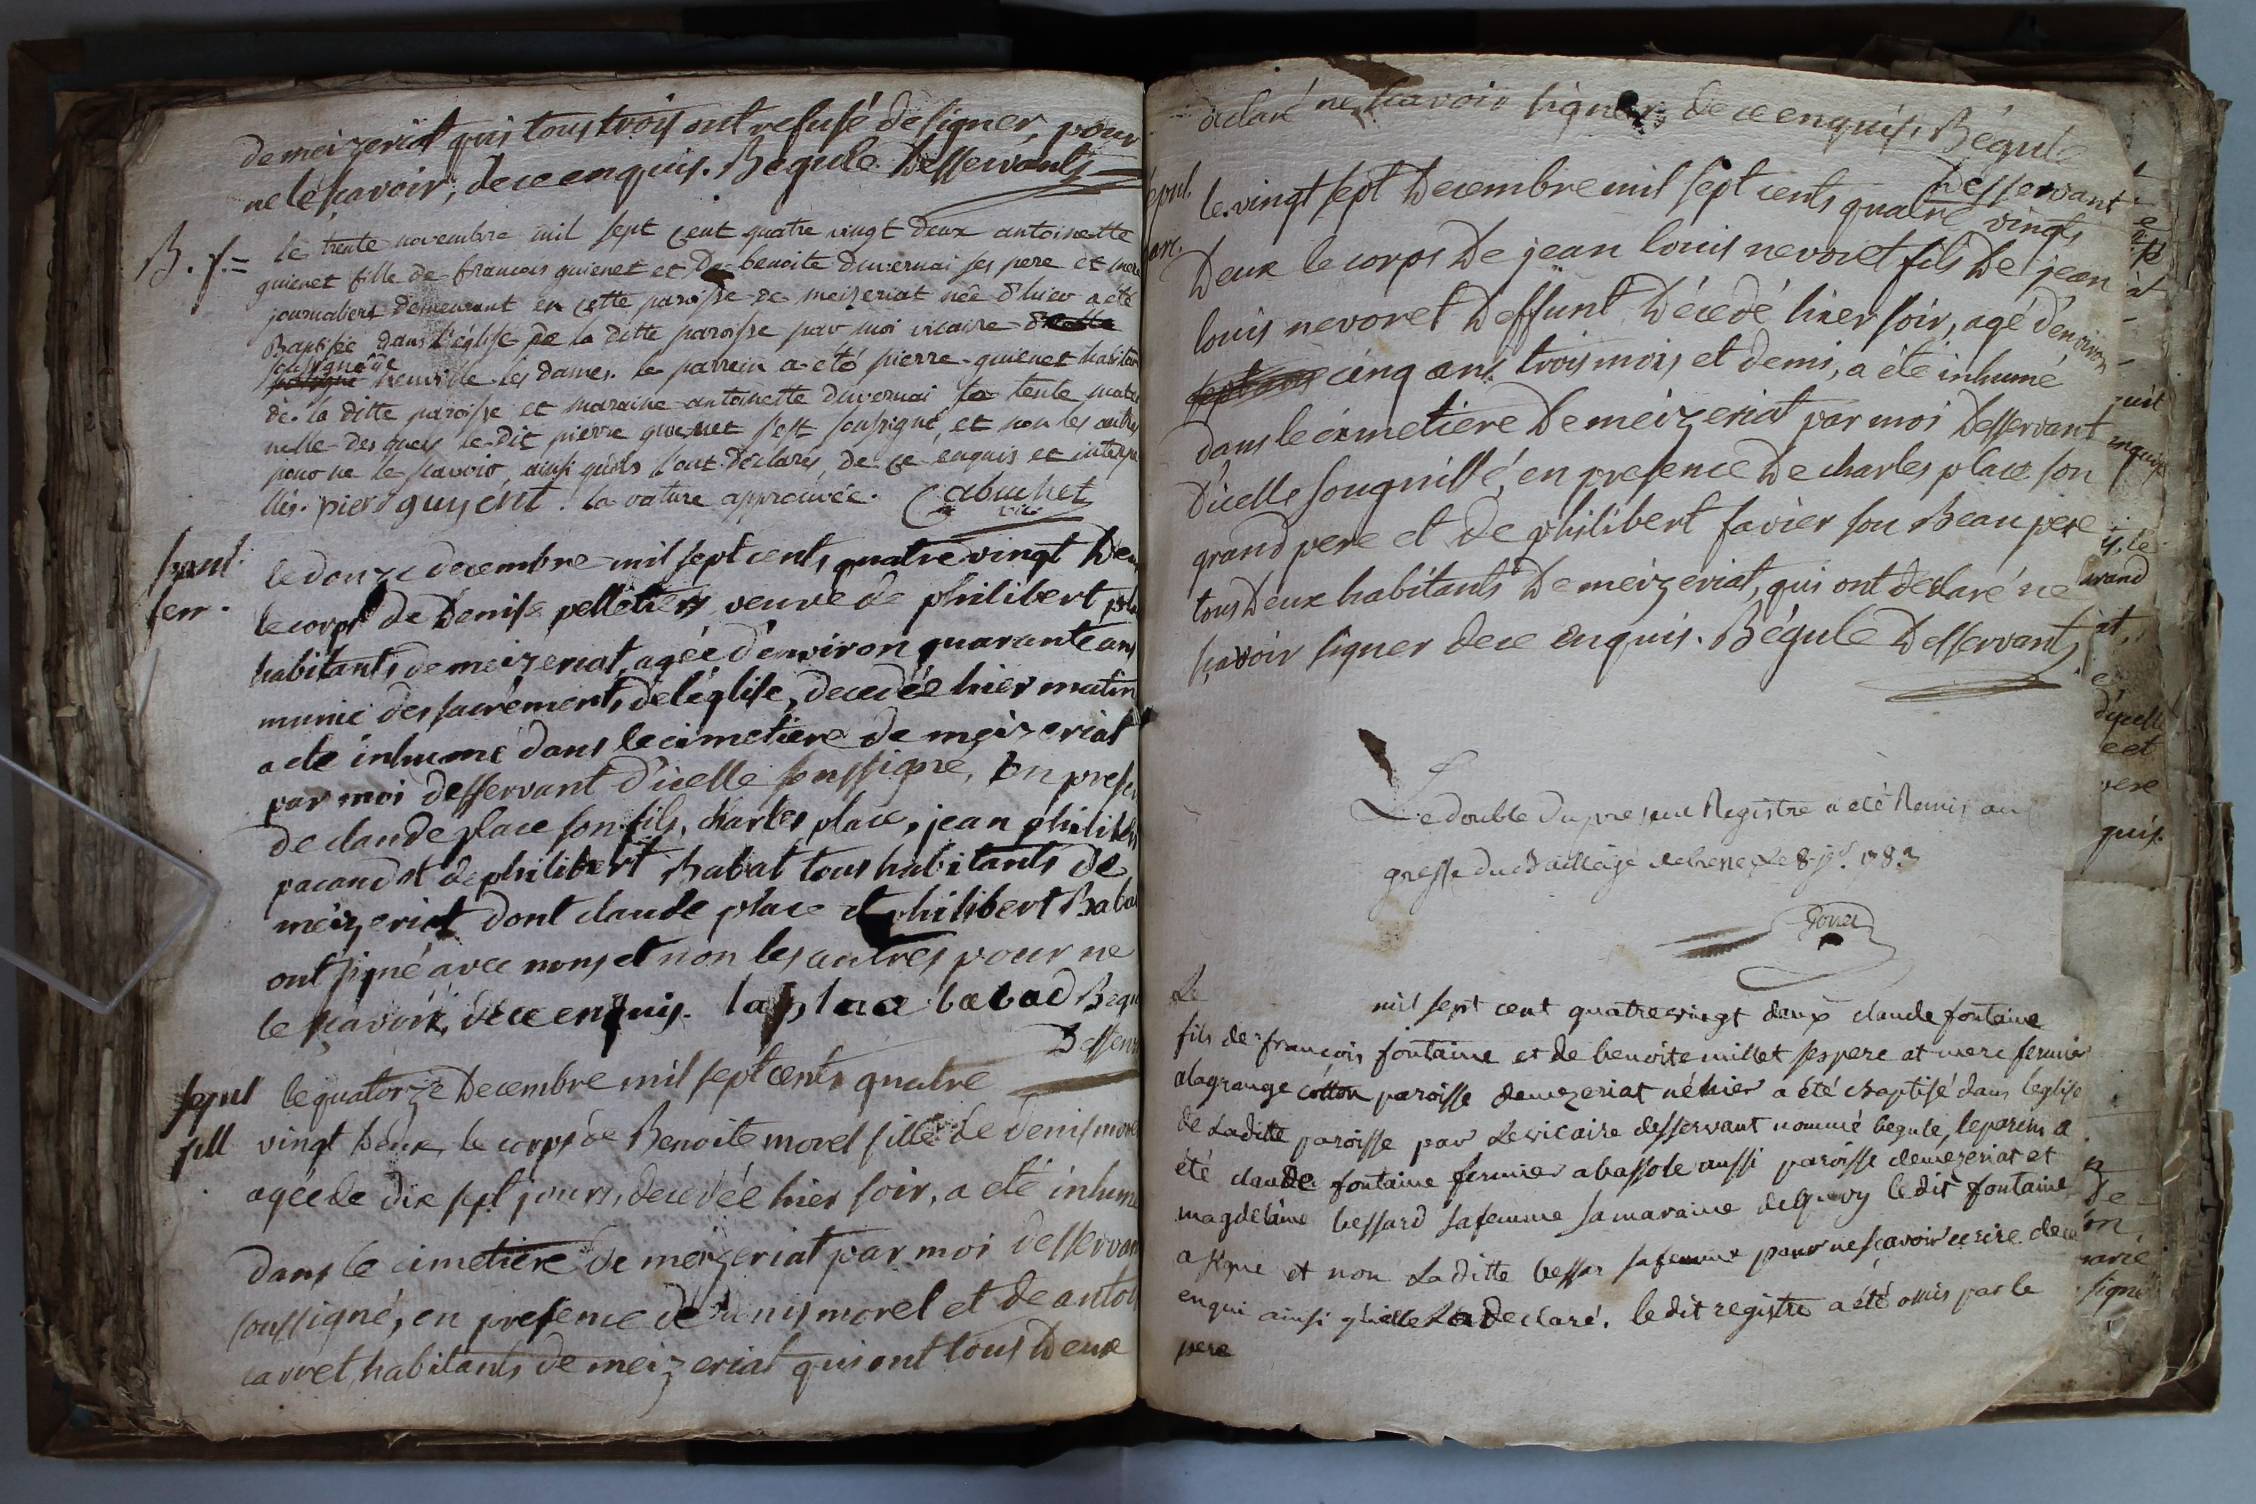 de meizeriat qui tous trois ont refusé de signer, pour
ne le scavoir, de ce enquis. Bégule Desservant
B. f.= le trente novembre mil sept cent quatre vingt deux antoinette
guienet fille de francois guienet et de benoite duvernai ses pere et mere
journaliers demeurant en cette paroisse de meizeriat née d'hier a été
Baptisée dans l'église de la ditte paroisse par moi vicaire
soussigné de neuville les dames. le parrein a été pierre guienet habitant
de la ditte paroisse et maraine antoinette duvernai sa tente mater
nelle des quels le dit pierre guienet s'est soussigné, et non les autres
pour ne le scavoir, ainsi qu'ils l'ont déclarés de ce enquis et interpe
llés. piere guyent. la rature approuvée. Cabuchet
vic
sepul. le douze decembre mil sept cents quatre vingt Deux
fem. le corps de Denise pelletier, veuve de philibert pla
habitants de meizeriat, agée d'environ quarante ans
munie des sacréments de l'église, decedée hier matin
a été inhumé dans le cimetiere de meizeriat
par moi desservant d'icelle soussigné, En presen
de claude place son fils, charles place, jean philibert
pacaud et de philibert Babat tous habitants de
meizeriat dont claude place et philibert Baba
ont signé avec nous et non les autres pour ne
le scavoir, de ce enquis. laplace babad Bégu
Desserv
sepul le quatorze Decembre mil sept cents quatre
fill vingt deux le corps de Benoite morel fille de denis morel
agée de dix sept jours, decedée hier soir, a été inhumé
dans le cimetiere de meizeriat par moi desservant
soussigné, en presence de denis morel et de antoi
carret habitants de meizeriat qui ont tous Deux
déclaré ne scavoir signer, de ce enquis, Bégule
Desservant
sepul. le vingt sept Decembre mil sept cents quatre vingts
Deux le corps De jean louis nevoret fils De jean
louis nevoret Deffunt Décedé hier soir, agé d'environ
cinq ans trois mois et demi, a été inhumé
dans le cimetiere De meizeriat par moi Desservant
D'icelle sousigné, en presence De charles place son
grand pere et de philibert favier son Beau pere
tous Deux habitants De meizeriat, qui ont déclaré ne
scavoir signer de ce enquis. Bégule Desservant
Le double Du present Registre a été Remis au
greffe du Bailliage de bresse Le 8 1783
Le mil sept cent quatre vingt deux claude fontaine
fils de françois fontaine et de benoite millet ses pere et mere fermier
a la grange cotton paroisse de mezeriat né hier a été Baptisé dans l'eglise
de Laditte paroisse par Le vicaire desservant nommé begule, le parein a
été claude fontaine fermier a bassole aussi paroisse de mezeriat et
magdelaine bessard sa femme sa maraine de quoy le dit fontaine
a signe et non La ditte bessar sa femme pour ne scavoir ecrire de ce
enqui ainsi qu'elle La declaré. le dit registre a été omis par le
pere